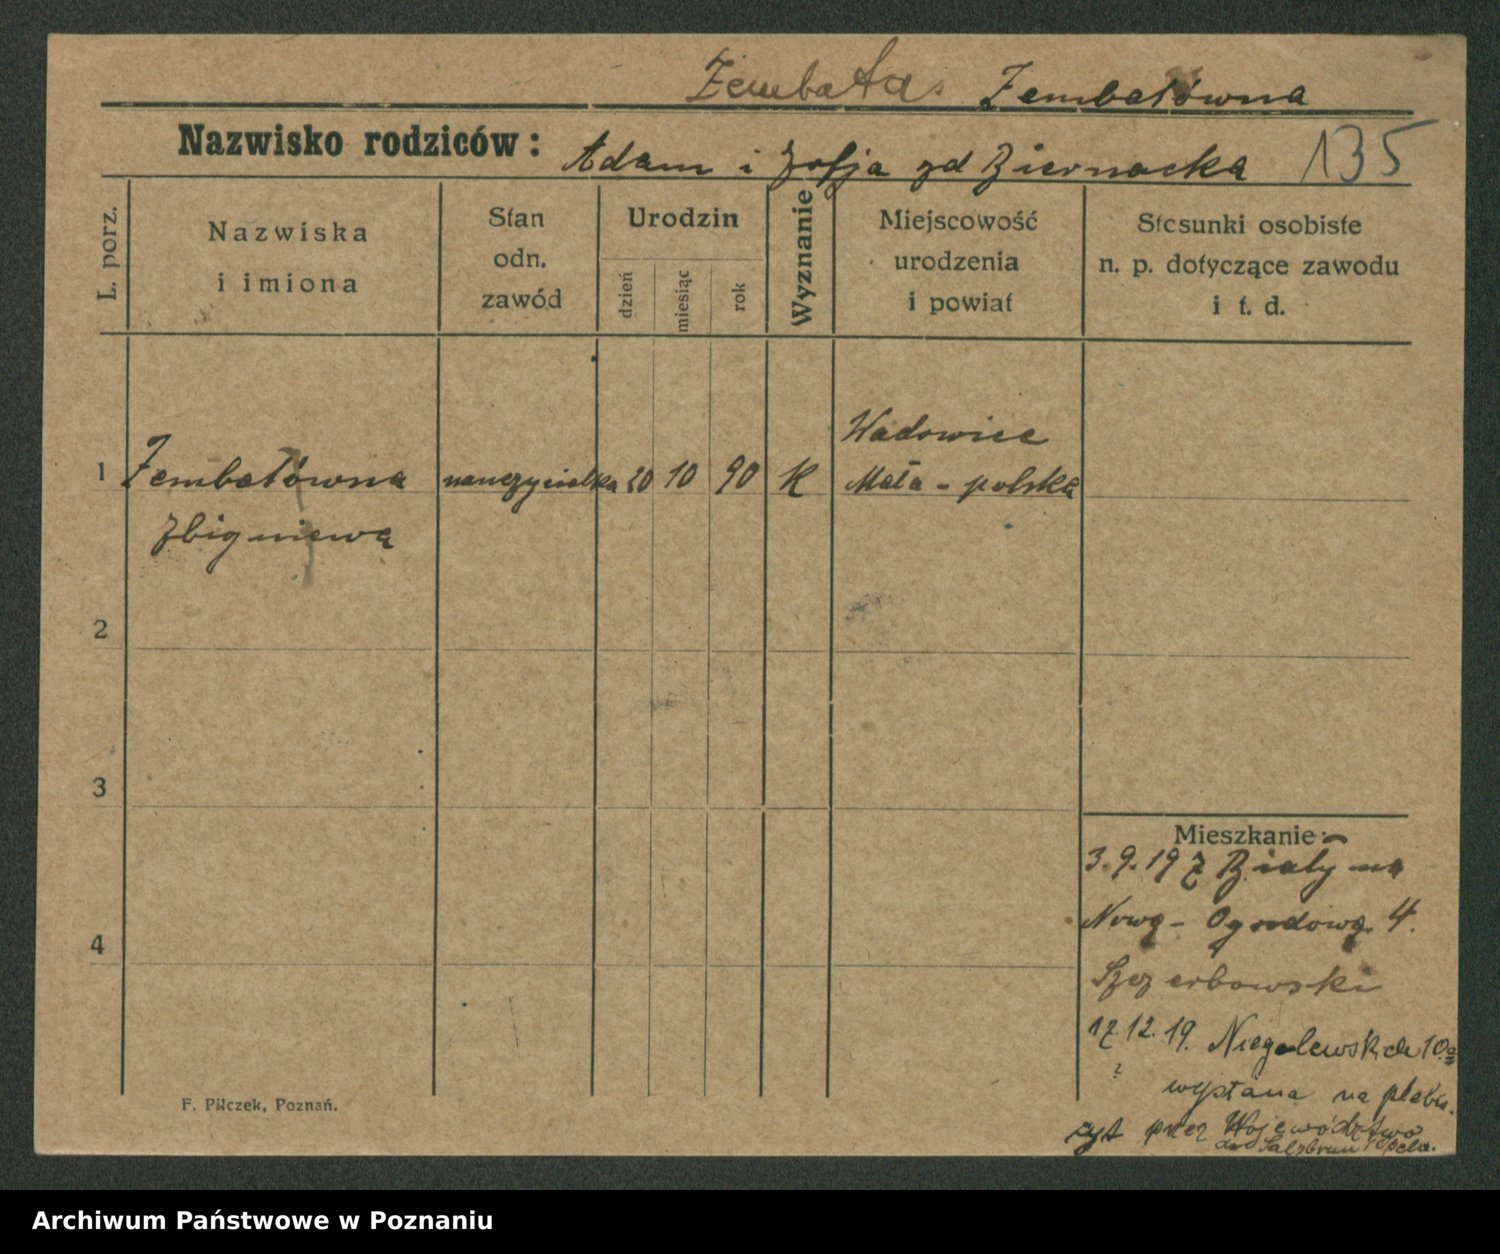 Zembata. Zembatówna
Nazwisko rodziców: Adam i Zofja zd Biernacka 135
L. porz.
Nazwiska i imiona
Stan odn. zawód
Urodzin
dzień
miesiąc
rok
Wyznanie
Miejscowość urodzenia i powiat
Stosunki osobiste n. p. dotyczące zawodu i t. d.
Wadowice
1 Zembatówna nauczycielka 20 10 90 K Mała-polska
Zbigniewa
2
3
Mieszkanie:
3.9.19 z Biały na
Nową-Ogrodową 4.
4
Szczerbowski
17.12.19. Niegolewskich 10.a
?
wysłana na plebis.
cyt przez Województwo
do Salzbrun
F. Pilczek, Poznań.
Archiwum Państwowe w Poznaniu